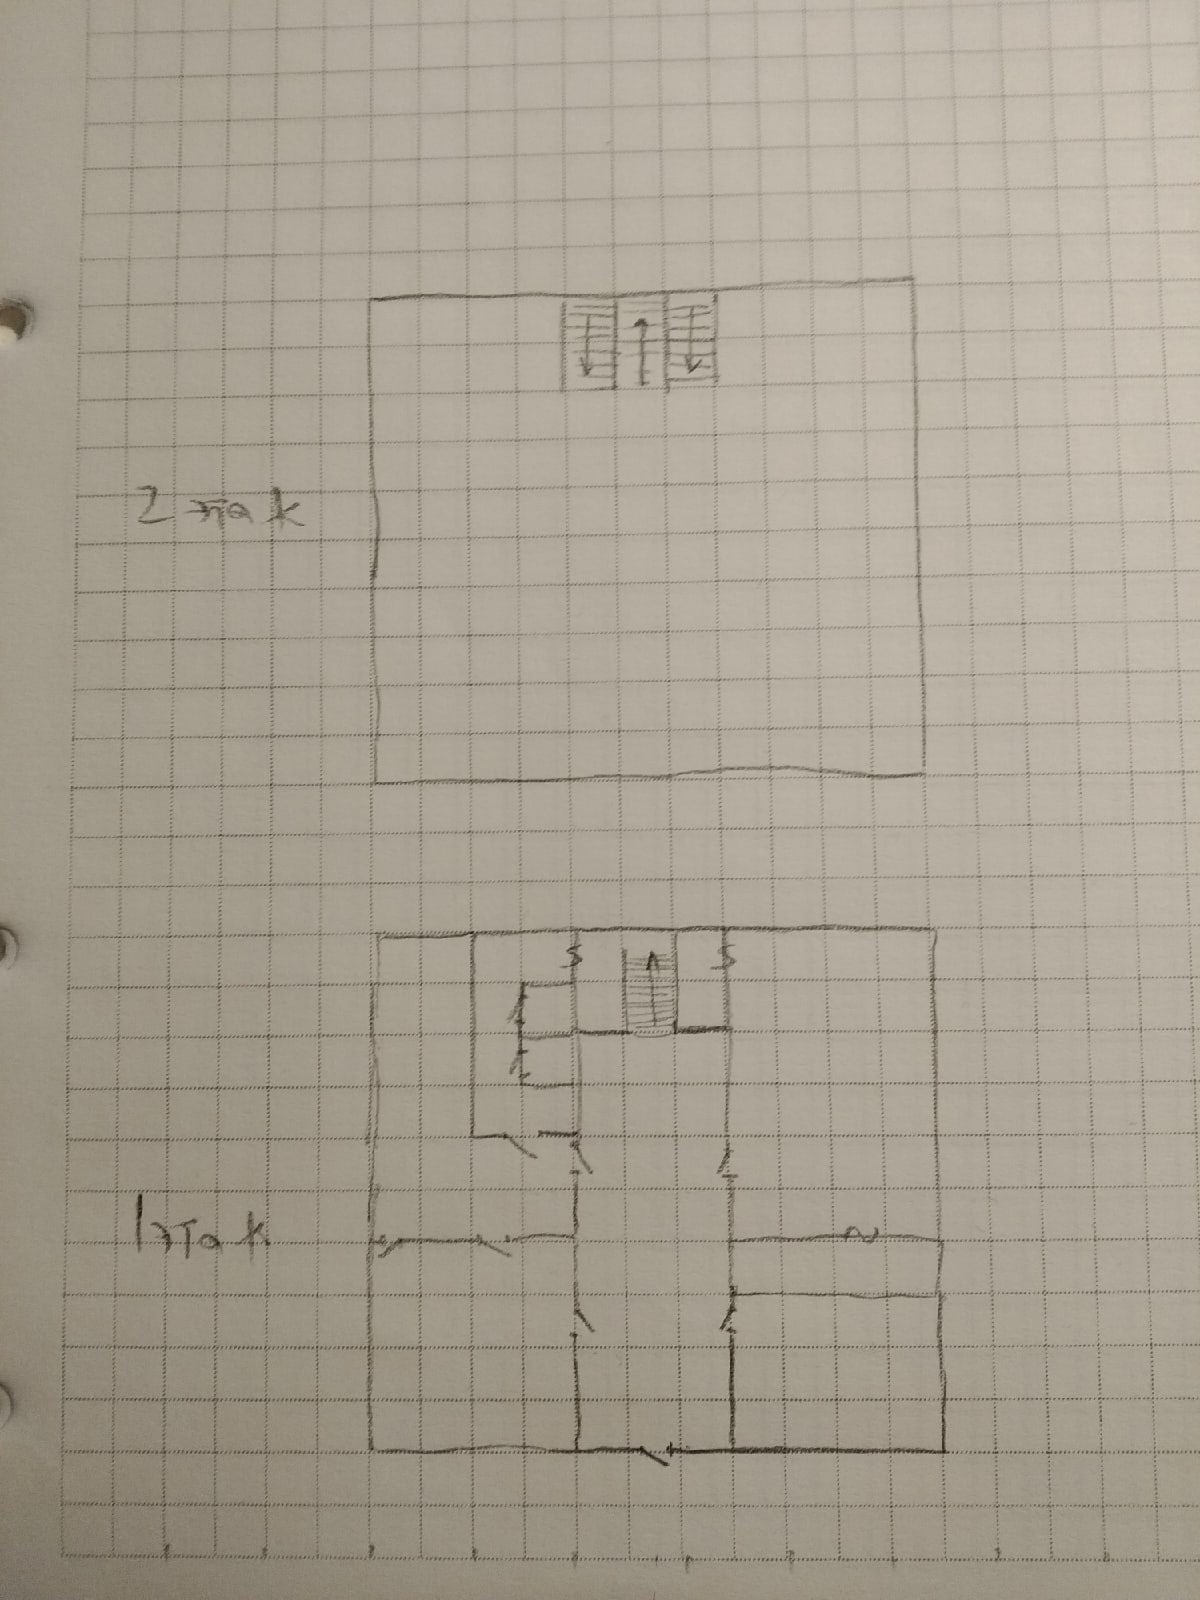 2 этаж
1 этаж